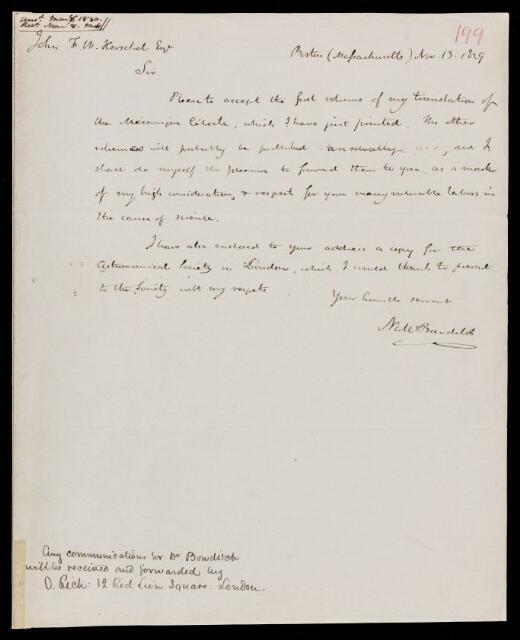 199
John F. W. Herschel Esqr
Boston (Massachusetts) Nov. 13. 1829
Sir
Please to accept the first volume of my translation of
the Mécanique Céleste, which I have just printed. The other
volumes will probably be published annually and I
shall do myself the pleasure to forward them to you, as a mark
of my high consideration, & respect for your many valuable labors in
the cause of science.
I have also enclosed to your address a copy for the
Astronomical Society in London, which I would thank to present
to the Society with my respects
Your humble servant
Nath Bowditch
Any communications for Dr Bowditch
will be received and forwarded by
O. Rich: 12 Red Lion Square. London.